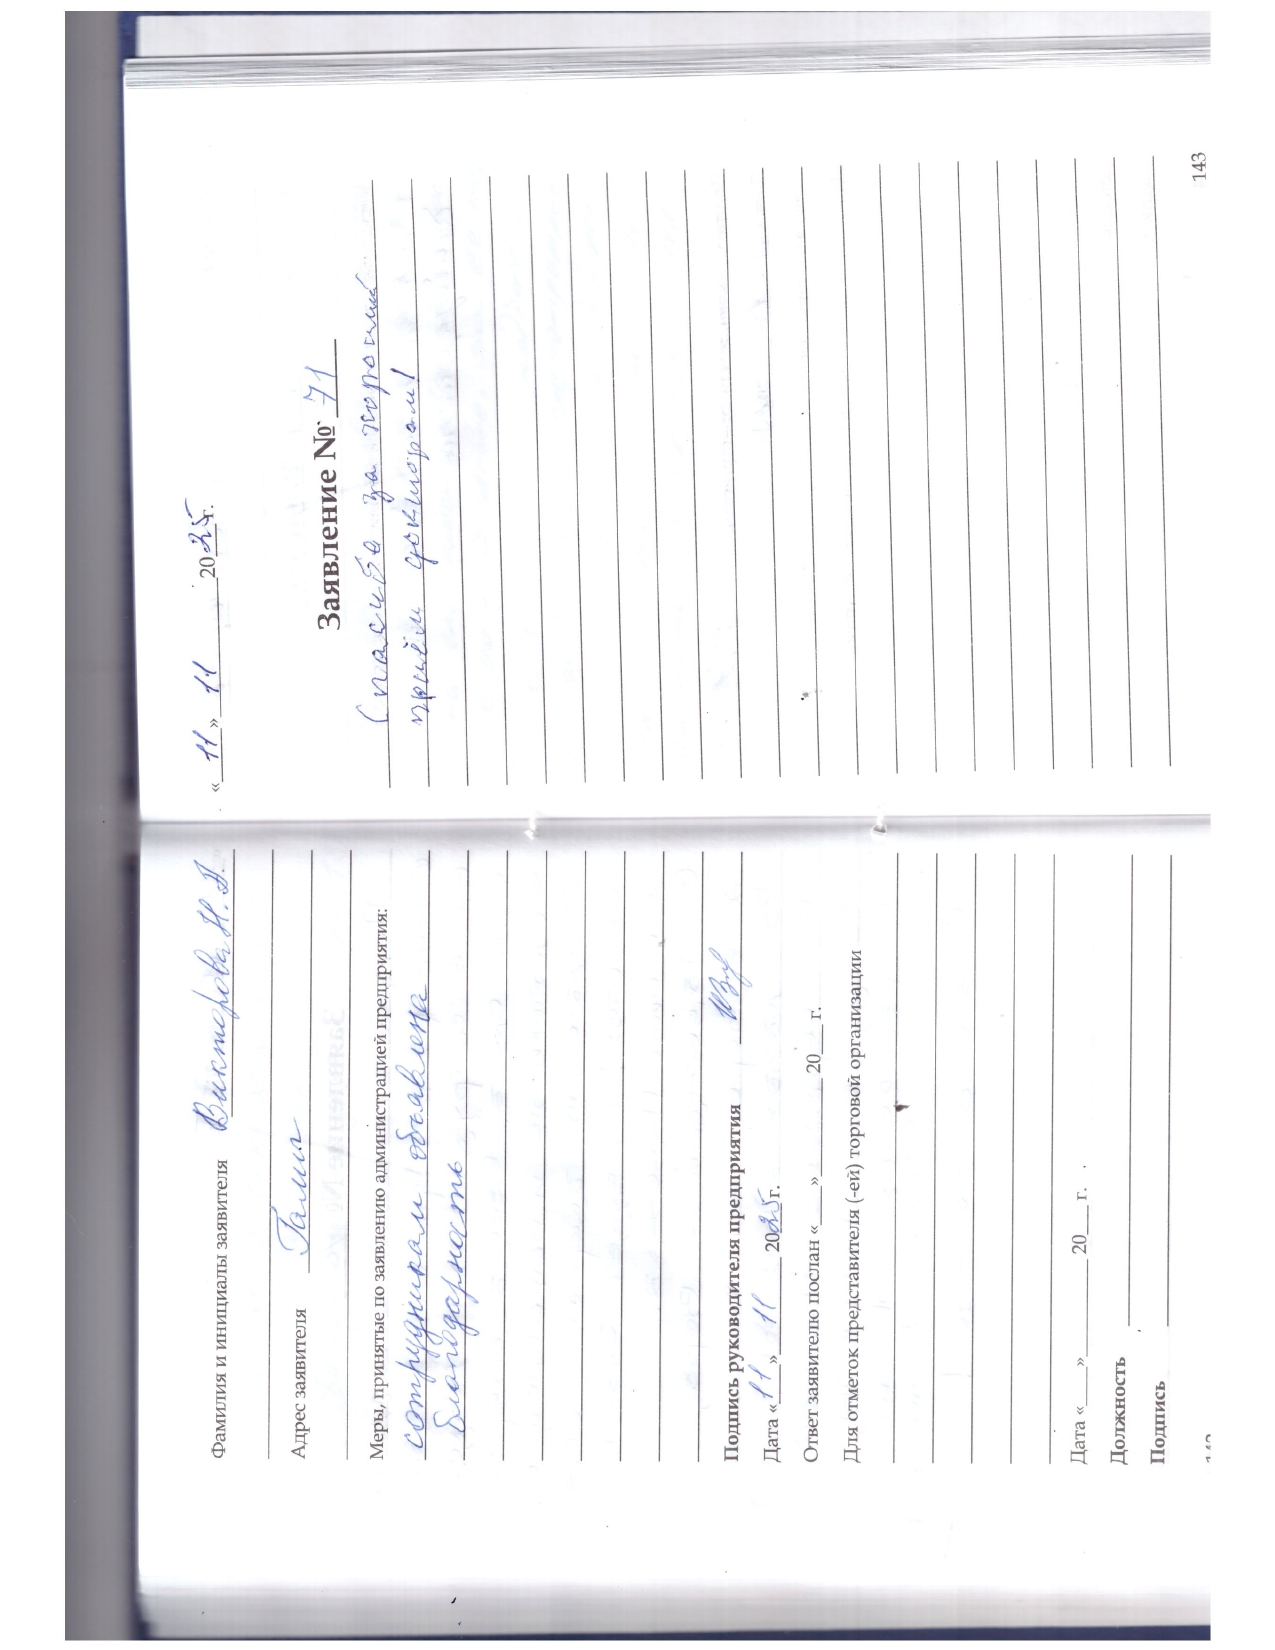 Фамилия и инициалы заявителя Викторова Н.А.
Адрес заявителя
Меры, принятые по заявлению администрацией предприятия:
сотрудникам объявлена
благодарность
Подпись руководителя предприятия
Дата «11» 11 2025г.
Ответ заявителю послан «___»________ 20___ г.
Для отметок представителя (-ей) торговой организации
Дата «___»________ 20___ г.
Должность
Подпись
«11» 11 2025г.
Заявление № 71
Спасибо за хороший
приём докторам!
143